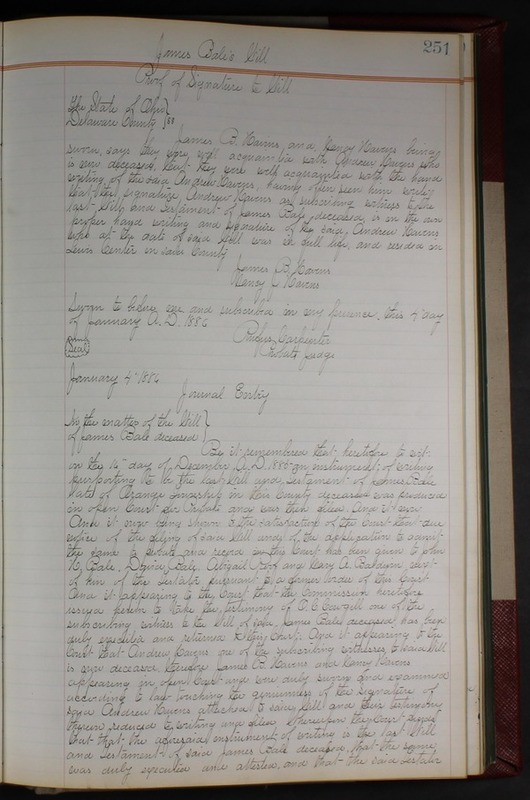 251
James Bale's Will
Proof of Signature to Will
The State of Ohio
Delaware County } ss
James B. Havens, and, Nancy Havens being
sworn, says they very well acquainted with Andrew Havens who
is now deceased, that they were well acquainted with the hand
writing of the said Andrew Havens, having often seen him write
that the signature, Andrew Havens as subscribing witness to the
last Will and Testament of James Bale, deceased, is in the own
proper hand writing and signature of the said, Andrew Havens
who at the date of said Will was in full life, and resided in
Lewis Center in said County
James B. Havens
Nancy Havens
Sworn to before me and subscribed in my presence, this 4" day
of January A.D. 1886
Seal
Carpenter
Probate Judge
January 4" 1886
Journal Entry
In the matter of the Will
of James Bale deceased
Be it remembered that, heretofore to wit:
on the 14" day of December A.D. 1885 an instrument of writing
purporting to be the last Will and Testament of James Bale
late of Orange Township in this County deceased was produced
in open Court for Probate and was then filed, And it now
And it now being shown to the satisfaction of the Court that due
notice of the filing of said Will and of the application to admit
the same to probate and record in this Court has been given to John
Bale, David Bale, Abigail and Mary A. Baldwin next
of kin of the Testator pursuant to a former order of this Court
And it appearing to the Court that the Commission heretofore
issued herein to take the testimony of Cowgill one of the
subscribing witness to the Will of said, James Bale deceased, has been
duly executed and returned to this Court; And it appearing to the
Court that Andrew Havens one of the subscribing witnesses to said Will
is now deceased, therefore James B. Havens and Nancy Havens
appearing in open Court and were duly sworn and examined
according to law touching the genuineness of the signature of
said Andrew Havens attached to said Will and their testimony
therein reduced to writing and filed. Whereupon the Court finds
that that the aforesaid instrument of writing is the last Will
and Testament of said James Bale deceased, that the same
was duly executed and attested, and that the said Testator